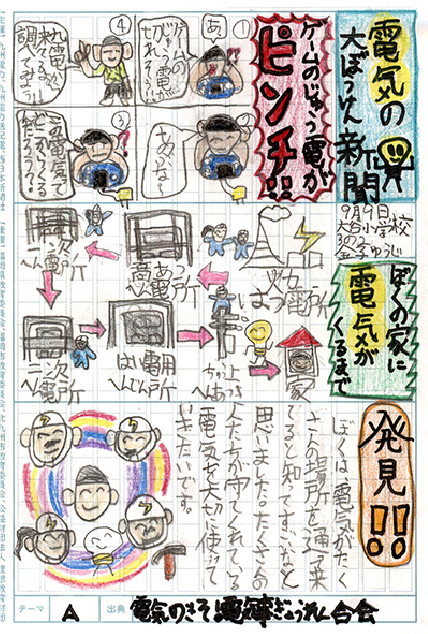 電気の
大ぼうけん
新聞
9月9日
大谷小学校
3の2
ゲームのじゅう電が
ピンチ!!
①
あ
ゲームの
じゅう電が
切れそう
②
あぶない
③
この電気って
どこからくる
だろう?
④
九電から
来てるか
調べて
みよう!
ぼくの家に
電気が
くるまで
火力
発電所
ちょう高あつ
へん電所
一次
へん電所
二次
へん電所
はい電用
へんでん所
ちゅう上
へんあつき
家
発見!!
ぼくは電気がたく
さんの場所を通って来
てると知ってすごいなと
思いました。たくさんの
人たちが守ってくれている
電気を大切に使って
いきたいです。
テーマ
A
出典
電気のきそ 電気事ぎょうれん合会